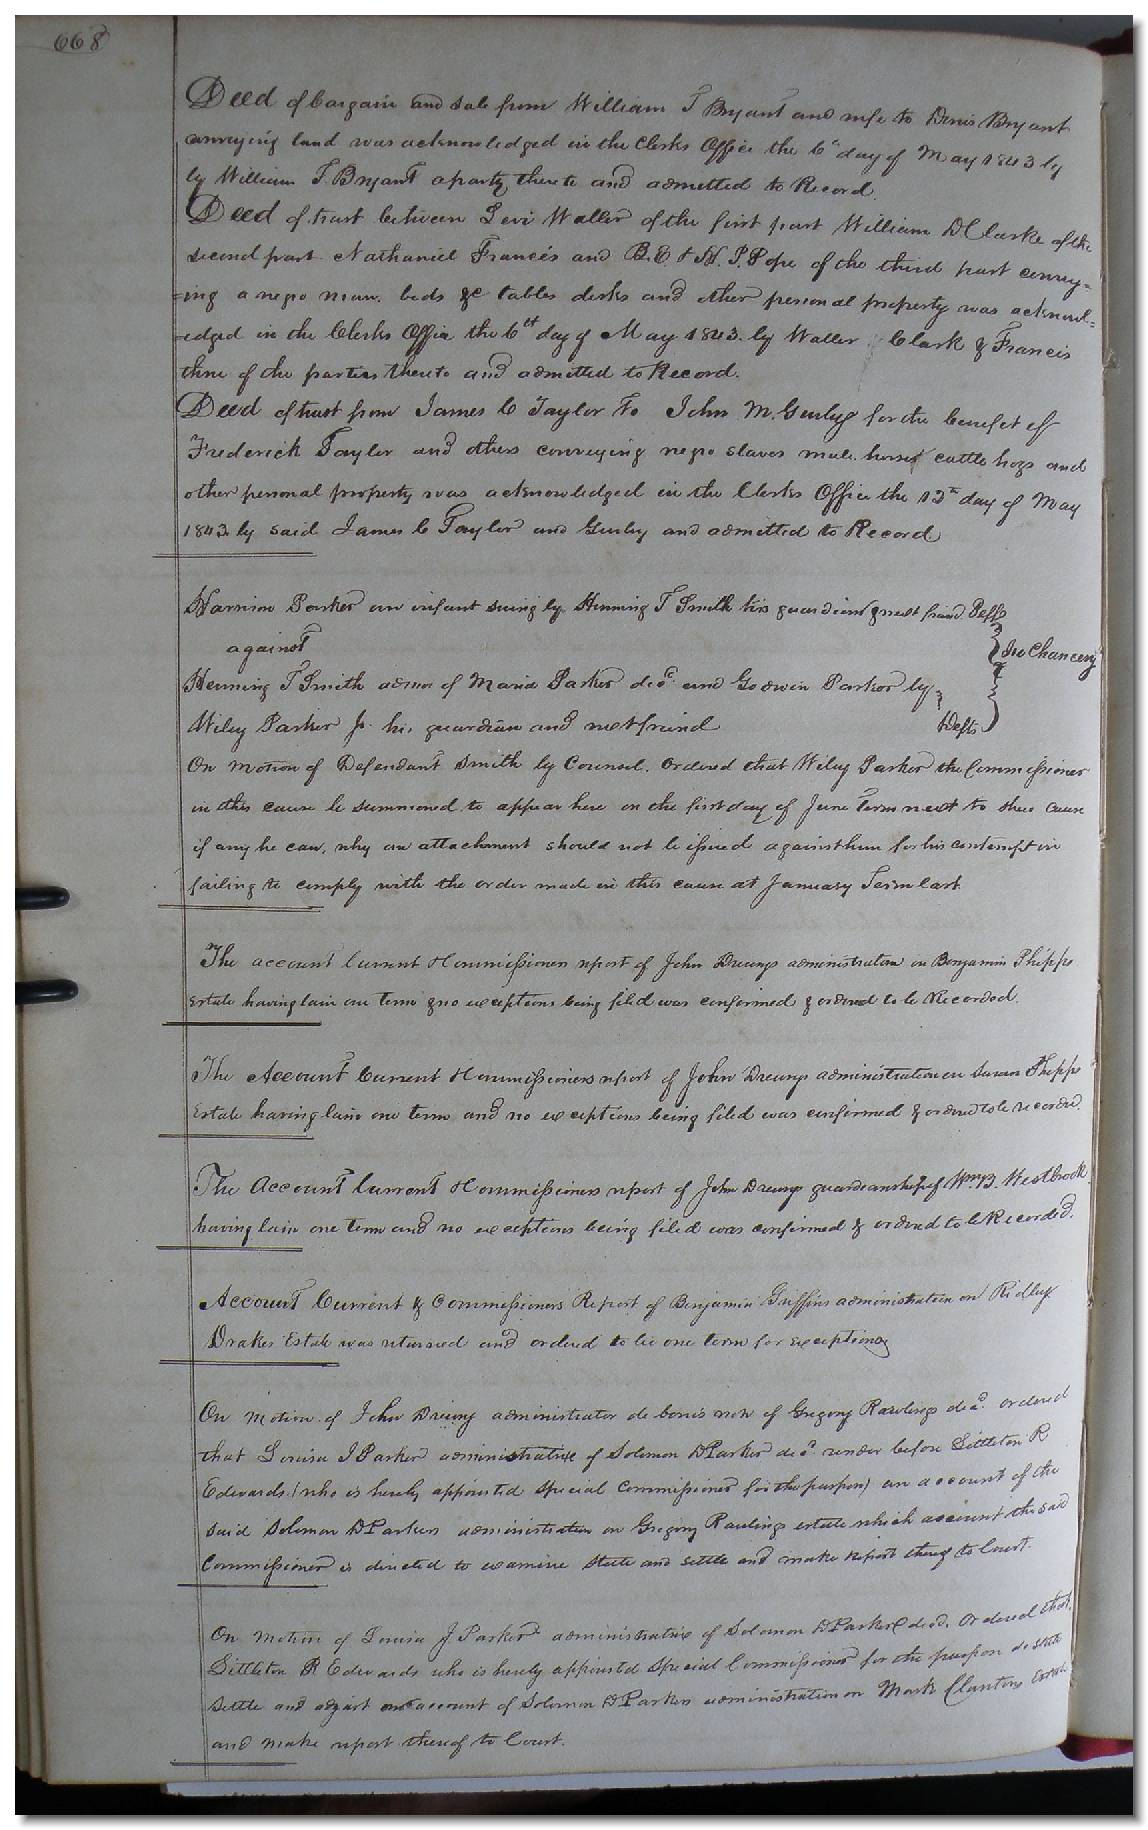 668
Deed of bargain and sale from William T Bryant and wife to Denis Bryant
conveying land was acknowledged in the Clerks Office the 6th day of May 1843 by
by William T. Bryant a party thereto and admitted to Record.
Deed of trust between Levi Waller of the first part William D Clarke of the
second part Nathaniel Francis and B. E. & H. P. Pope of the third part convey=
=ing a negro man. beds &c tables desks and other personal property was acknowl=
=edged in the Clerks Office the 6th day of May 1843. by Waller Clark & Francis
three of the parties thereto and admitted to Record.
Deed of trust from James C Taylor to John M. Gurley for the benefit of
Frederick Taylor and others conveying negro slaves mule. horses cattle hogs and
other personal property was acknowledged in the Clerks Office the 12th day of May
1843. by said James C Taylor and Gurley and admitted to Record
Harrison Parker an infant suing by Henning T Smith his guardian & next friend Peffs
against
In Chancery
Henning T Smith admor of Maria Parker decd. and Godwin Parker by
Wiley Parker Jr. his guardian and next friend
Defts
On motion of Defendant Smith by Counsel. Ordered that Wiley Parker the Commissioner
in this cause be summoned to appear here on the first day of June Term next to shew cause
if any he can, why an attachment should not be issued against him for his contempt in
failing to comply with the order made in this cause at January Term last
The account Current & Commissioners report of John Drewrys administration on Benjamin Phipps
Estate having lain one term & no exceptions being filed was confirmed & ordered to be Recorded.
The Account Current & Commissioners report of John Drewrys administration on Phipps
Estate having lain one term and no exceptions being filed was confirmed & ordered to be recorded.
The Account Current & Commissioners report of John Drewrys guardianship of Wm. B. Westbrook
having lain one term and no exceptions being filed was confirmed & ordered to be Recorded.
Account Current & Commissioners Report of Benjamin Griffins administration on Ridley
Drakes Estate was returned and ordered to lie one term for exceptions
On motion of John Drewry administrator de bonis non of Gregory Rawlings decd. ordered
that Louisa J Parker administratrix of Solomon D Parker decd. render before Littleton R
Edwards (who is hereby appointed Special Commissioner for the purpose) an account of the
said Solomon D Parkers administration on Gregory Rawlings estate which account the said
Commissioner is directed to examine state and settle and make report thereof to Court.
On motion of Louisa J Parker administratrix of Solomon D Parker decd. Ordered that
Littleton R Edwards who is hereby appointed Special Commissioner for the purpose do state
settle and adjust an account of Solomon D Parkers administration on Mark Clantons Estate
and make report thereof to Court.